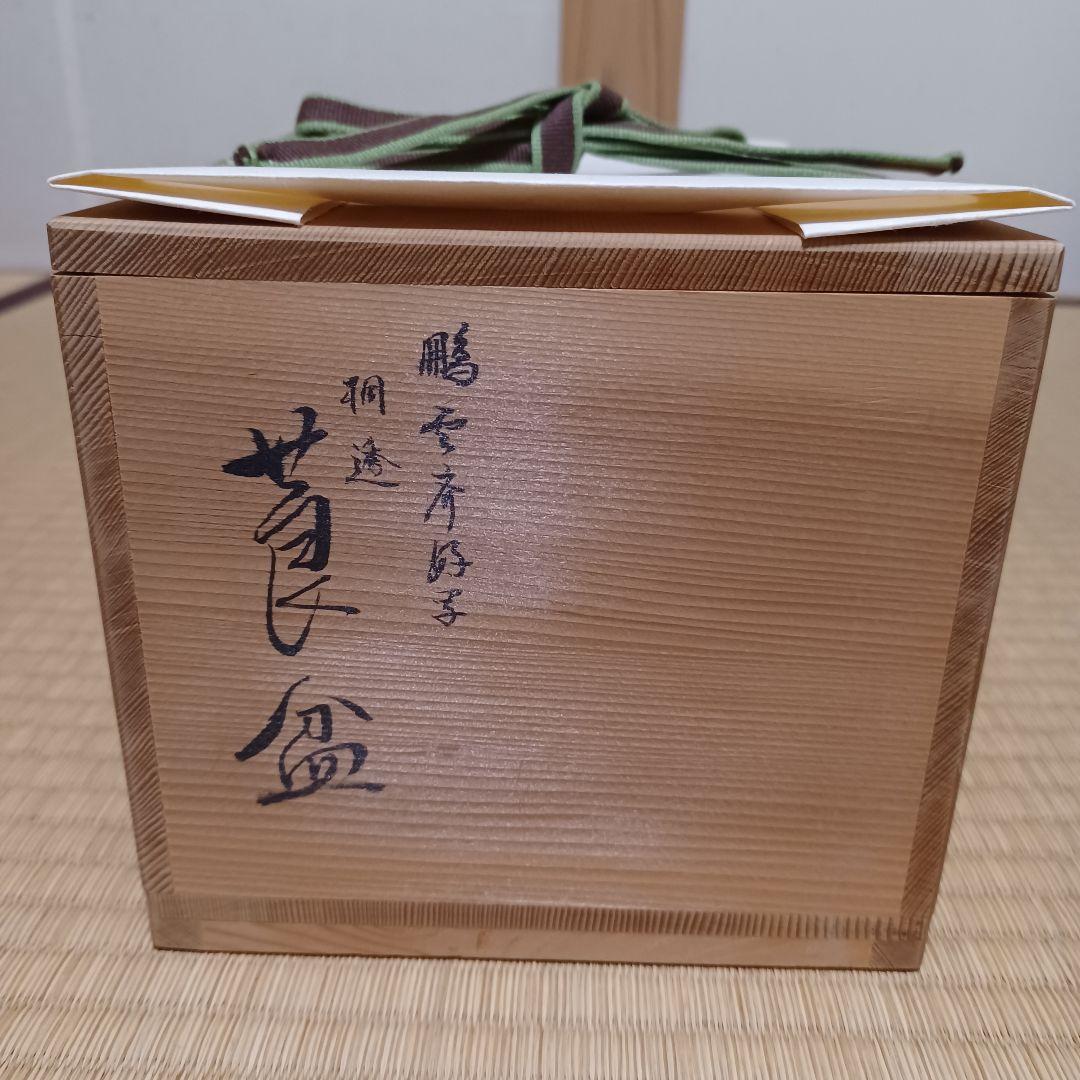 鵬雲斎好写
桐透
莨盆